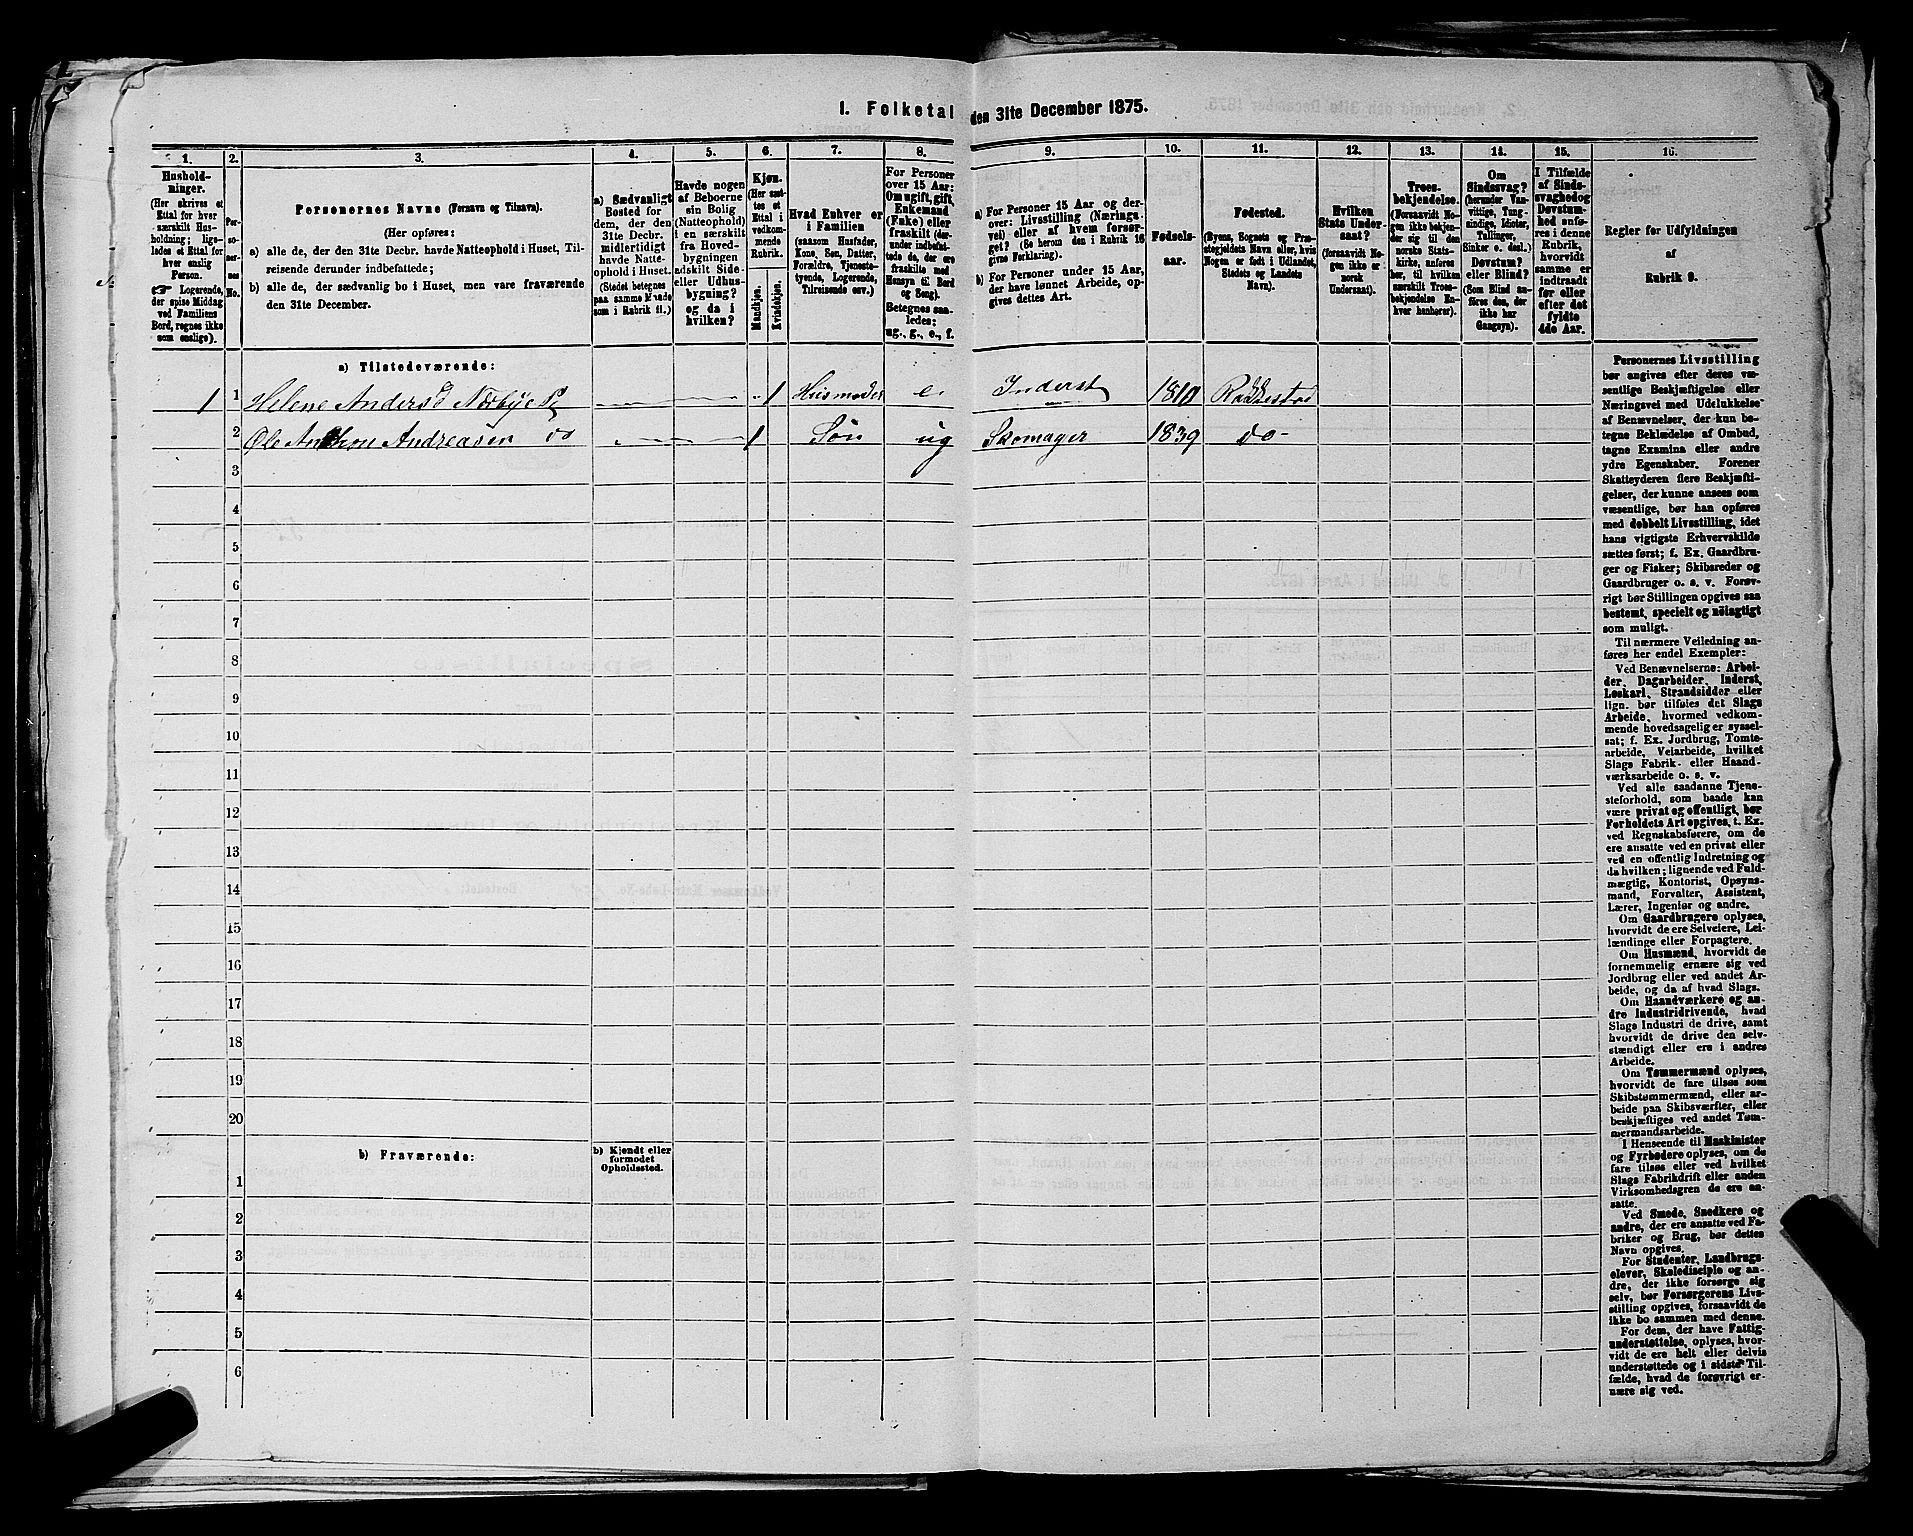 1. Folketal den 31te December 1875.
1.
2.
3.
4.
5.
6.
7.
8.
9.
10.
11.
12.
13.
14.
15.
16.
Hushold-
ninger.
(Her skrives et
Ettal for hver
særskilt Hus-
holdning; lige-
ledes et Ettal for
hver enslig
Person.
☞ Logerende,
der spise Middag
ved Familiens
Bord, regnes ikke
som enslige).
Per-
so-
ner-
nes
No.
Personernes Navne (Fornavn og Tilnavn).
(Her opføres:
a) alle de, der den 31te Decbr. havde Natteophold i Huset, Til-
reisende derunder indbefattede;
b) alle de, der sædvanlig bo i Huset, men vare fraværende
den 31te December.
a) Sædvanligt
Bosted for
dem, der den
31te Decbr.
midlertidigt
havde Natte-
ophold i Huset.
(Stedet betegnes
paa samme Maade
som i Rubrik 11.)
Havde nogen
af Beboerne
sin Bolig
(Natteophold)
i en særskilt
fra Hoved-
bygningen
adskilt Side-
eller Udhus-
bygning?
og da i
hvilken?
Kjøn.
(Her sæt-
tes et
Ettal i
vedkom-
mende
Rubrik.
Mandkjøn.
Kvindekjøn.
Hvad Enhver er
i Familien
(saasom Husfader,
Kone, Søn, Datter,
Forældre, Tjeneste-
tyende, Logerende,
Tilreisende osv.)
For Personer
over 15 Aar:
Om ugift, gift,
Enkemand
(Enke) eller
fraskilt (der-
under indbefat-
tede de, der ere
fraskilte med
Hensyn til Bord
og Seng).
Betegnes saa-
ledes:
ug., g., e., f.
a) For Personer 15 Aar og der-
over: Livsstilling (Nærings-
vei) eller af hvem forsør-
get? (Se herom den i Rubrik 16
givne Forklaring).
b) For Personer under 15 Aar,
der have lønnet Arbeide, op-
gives dettes Art.
Fødsels-
aar.
Fødested.
(Byens, Sognets og Præ-
stegjeldets Navn eller, hvis
Nogen er født i Udlandet,
Stedets og Landets
Navn).
Hvilken
Stats Under-
saat?
(forsaavidt No-
gen ikke er
norsk
Undersaat).
Troes-
bekjendelse.
(Forsaavidt No-
gen ikke bekjen-
der sig til den
norske Stats-
kirke, anføres
her, til hvilken
særskilt Troes-
bekjendelse En-
hver henhører).
Om
Sindssvag?
(herunder Van-
vittige, Tung-
sindige, Idioter,
Tullinger,
Sinker o. desl.)
Døvstum?
eller Blind?
(Som Blind an-
føres den, der
ikke har
Gangsyn).
I Tilfælde
af Sinds-
svaghed og
Døvstum-
hed anfø-
res i denne
Rubrik,
hvorvidt
samme er
indtraadt
før eller
efter det
fyldte
4de Aar.
Regler for Udfyldningen
af
Rubrik 9.
a) Tilstedeværende:
1 1 Helene Andersd Nærbye 1 Husmoder e. Inderst 1810 Rakkestad
2 Ole Anthon Andreasen do 1 Søn ug Skomager 1839 do
3
4
5
6
7
8
9
10
11
12
13
14
15
16
17
18
19
20
b) Fraværende:
b) Kjendt eller
formodet
Opholdssted.
1
2
3
4
5
6
Personernes Livsstilling
bør angives efter deres væ-
sentlige Beskjæftigelse eller
Næringsvei med Udelukkelse
af Benævnelser, der kun be-
tegne Beklædelse af Ombud,
tagne Examina eller andre
ydre Egenskaber. Forener
Skatteyderen flere Beskjæfti-
gelser, der kunne ansees som
væsentlige, bør han opføres
med dobbelt Livsstilling, idet
hans vigtigste Erhvervskilde
sættes først; f. Ex. Gaardbru-
ger og Fisker; Skibsreder og
Gaardbruger o. s. v. Forøv-
rigt bør Stillingen opgives saa
bestemt, specielt og nøiagtigt
som muligt.
Til nærmere Veiledning an-
føres her endel Exempler:
Ved Benævnelserne: Arbei-
der, Dagarbeider, Inderst,
Løskarl, Strandsidder eller
lign. bør tilføies det Slags
Arbeide, hvormed vedkom-
mende hovedsagelig er syssel-
sat; f. Ex. Jordbrug, Tomte-
arbeide, Veiarbeide, hvilket
Slags Fabrik- eller Haand-
værksarbeide o. s. v.
Ved alle saadanne Tjene-
steforhold, som baade kan
være privat og offentligt, bør
Forholdets Art opgives, t. Ex.
ved Regnskabsførere, om de
ere ansatte ved en privat eller
ved en offentlig Indretning og
da hvilken; lignende ved Fuld-
mægtig, Kontorist, Opsyns-
mand, Forvalter, Assistent,
Lærer, Ingeniør og andre.
Om Gaardbrugere oplyses,
hvorvidt de ere Selveiere, Lei-
lændinge eller Forpagtere.
Om Husmænd, hvorvidt de
fornemmelig ernære sig ved
Jordbrug eller ved andet Ar-
beide, og da af hvad Slags.
Om Haandværkere og an-
dre Industridrivende, hvad
Slags Industri de drive, samt
hvorvidt de drive den selv-
stændigt eller ere i andres
Arbeide.
Om Tømmermænd oplyses,
hvorvidt de fare tilsøs som
Skibstømmermænd, eller ar-
beide paa Skibsværfter, eller
beskjæftiges ved andet Tøm-
mermandsarbeide.
I Henseende til Maskinister
og Fyrbødere oplyses, om de
fare tilsøs eller ved hvilket
Slags Fabrikdrift eller anden
Virksomhedsgren de ere an-
satte.
Ved Smede, Snedkere og
andre, der ere ansatte ved Fa-
briker og Brug, bør dettes
Navn opgives.
For Studenter, Landbrugs-
elever, Skoledisciple og an-
dre, der ikke forsørge sig
selv, bør Forsørgerens Livs-
stilling opgives, forsaavidt de
ikke bo sammen med denne.
For dem, der have Fattig-
understøttelse, oplyses, hvor-
vidt de ere helt eller delvis
understøttede og i sidste Til-
fælde, hvad de forøvrigt er-
nære sig ved.